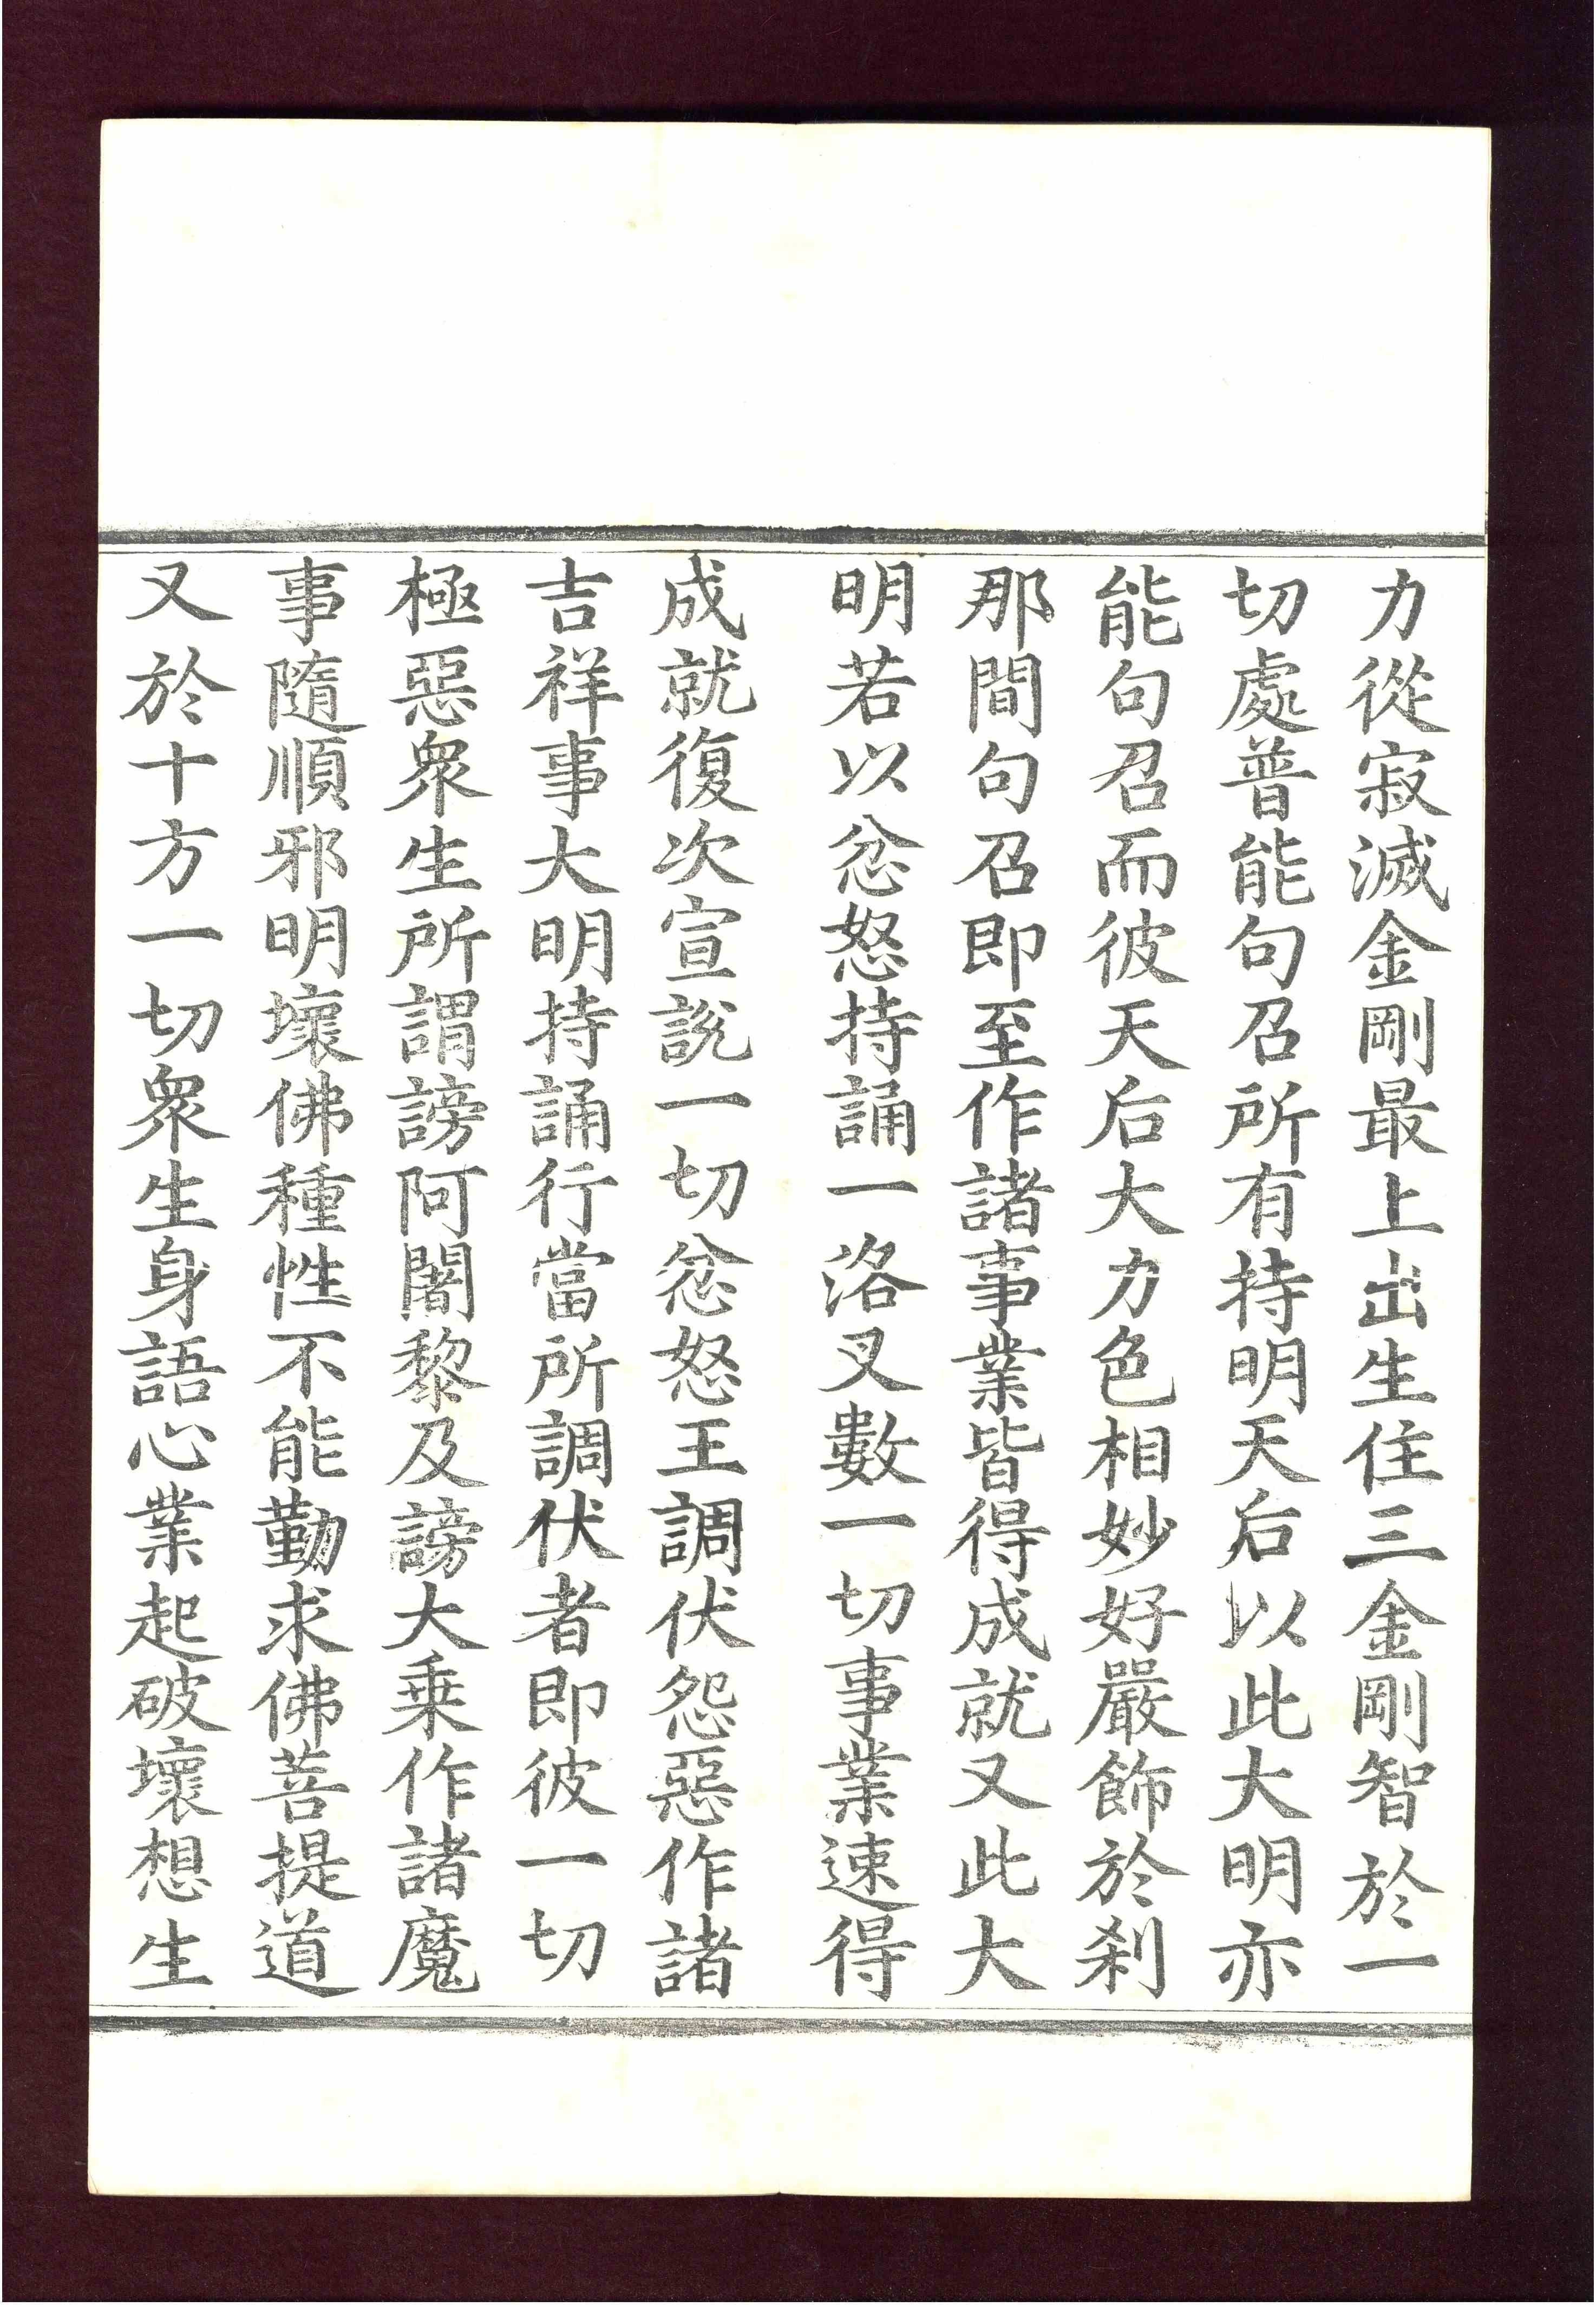 力從寂滅金剛最上出生住三金剛智於一
切處普能句召所有持明天后以此大明亦
能句召而彼天后大力色相妙好嚴飾於刹
那間句召即至作諸事業皆得成就又此大
明若以忿怒持誦一洛叉數一切事業速得
成就復次宣說一切忿怒王調伏怨惡作諸
吉祥事大明持誦行當所調伏者即彼一切
極惡眾生所謂謗阿闍黎及謗大乘作諸魔
事隨順邪明壞佛種性不能勤求佛菩提道
又於十方一切眾生身語心業起破壞想生